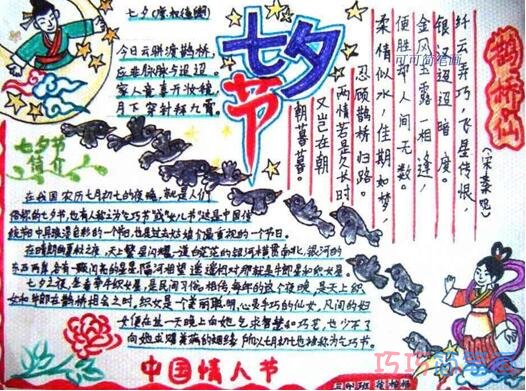 七夕(唐·权德舆)
今日云骈渡鹊桥,
应非脉脉与迢迢。
家人竞喜开妆镜,
月下穿针拜九霄。
七夕节
鹊桥仙
(宋·秦观)
纤云弄巧,飞星传恨,
银汉迢迢暗度。
金风玉露一相逢,
便胜却人间无数。
柔情似水,佳期如梦,
忍顾鹊桥归路
两情若是久长时
又岂在朝
朝暮暮。
七夕节
简介
在我国,农历七月初七的夜晚,就是人们
俗称的七夕节,也有人称之为乞巧节或女儿节,这是中国传
统节日中具浪漫色彩的一个节日,也是过去姑娘们最重视的一个节日。
在晴朗的夏秋之夜,天上繁星闪耀,一道白茫茫的银河横贯南北,银河的
东西两岸,各有一颗闪亮的星星,隔河相望,遥遥相对,那就是牵牛星和织女星。
七夕之夜,坐看牵牛织女星,是民间习俗。相传,每年的这个夜晚,是天上织
女和牛郎在鹊桥相会之时,织女是一个美丽聪明,心灵手巧的仙女,凡间的妇
女便在这一天晚上向她乞求智慧和巧艺,也少不了
向她求赐美满的姻缘,所以七月初七也被称为乞巧节。
中国情人节
可可简笔画